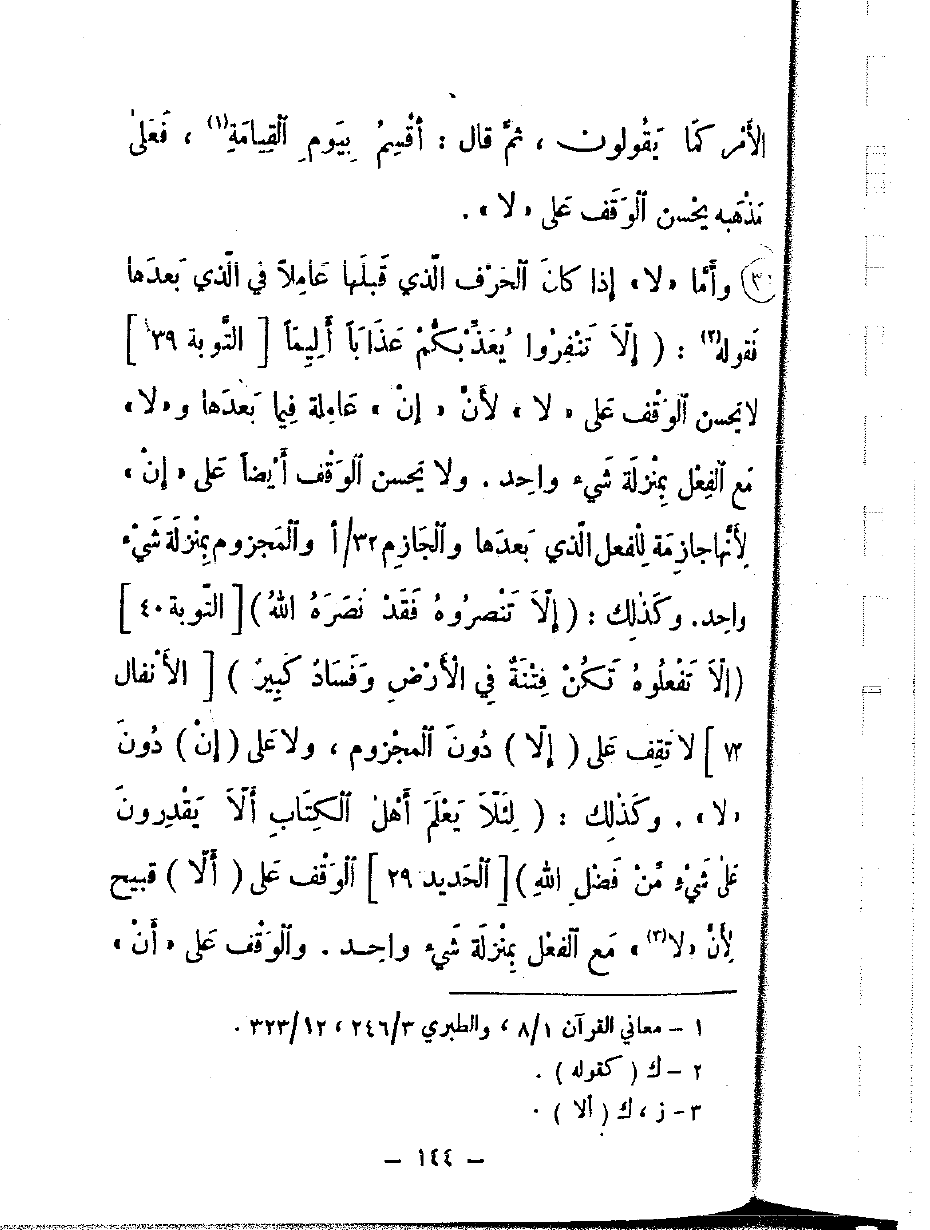 الأَمْر كَمَا يَقُولون ، ثمَّ قال : أُقْسِمُ بِيَومِ ٱلْقِيامَةِ(١) ، فَعَلىٰ
مَذْهَبه يحْسن ٱلوَقْف عَلى «لا» .
وأَمَّا «لا» إذا كانَ ٱلحَرْف الَّذي قَبلَها عَامِلاً في الَّذي بَعدَها
فَقوله(٢) : ( إلَّا تَنْفِروا يُعَذِّبْكُمْ عَذَاباً أَلِيمَاً [ التَّوبة ٣٩ ]
لا يَحسن ٱلوَقْف عَلى « لا » لأَنَّ « إنْ » عَامِلة فِيما بَعدَها و «لا»
مَع ٱلفِعْل بِمنْزِلَة شَيء واحِد . ولا يَحسن ٱلوَقْف أَيْضاً عَلى « إنْ »
لِأَنَّها جازِمَة لِلْفعل الَّذي بَعدَها وٱلْجَازِم ٣٢/أ وٱلْمَجزوم بِمنْزِلَة شَيْء
واحِد. وكَذَٰلِك : ( إلَّا تَنْصروُهُ فَقَدْ نَصَرَهُ اللهُ ) [ التَّوبة ٤٠ ]
(إلَّا تَفْعَلُوهُ تَكُنْ فِتْنَةٌ فِي الْأَرْضِ وَفَسَادٌ كَبِيرٌ ) [ الأَنْفال
٧٣ ] لا تَقِف عَلى ( إلَّا ) دُونَ ٱلمَجْزوم ، ولا عَلى ( إنْ ) دُونَ
«لا» . وكَذَٰلِك : ( لِئَلَّا يَعْلَمَ أَهْلُ ٱلْكِتَابِ أَلَّا يَقْدِرونَ
عَلىٰ شَيْءٍ مِّنْ فَضْلِ اللهِ ) [ ٱلْحَديد ٢٩ ] ٱلْوَقْف عَلى ( أَلَّا ) قبيح
لِأَنَّ «لا(٣)» مَع ٱلفعْل بِمنْزِلَة شَيء واحِد . وٱلْوَقْف عَلى « أَنْ »
١ – معاني القرآن ٨/١ ، والطبري ٢٤٦/٣ ، ٣٢٣/١٢ .
٢ – ك ( كقوله ) .
٣ – ز ، ك ( ألا ) .
– ١٤٤ –